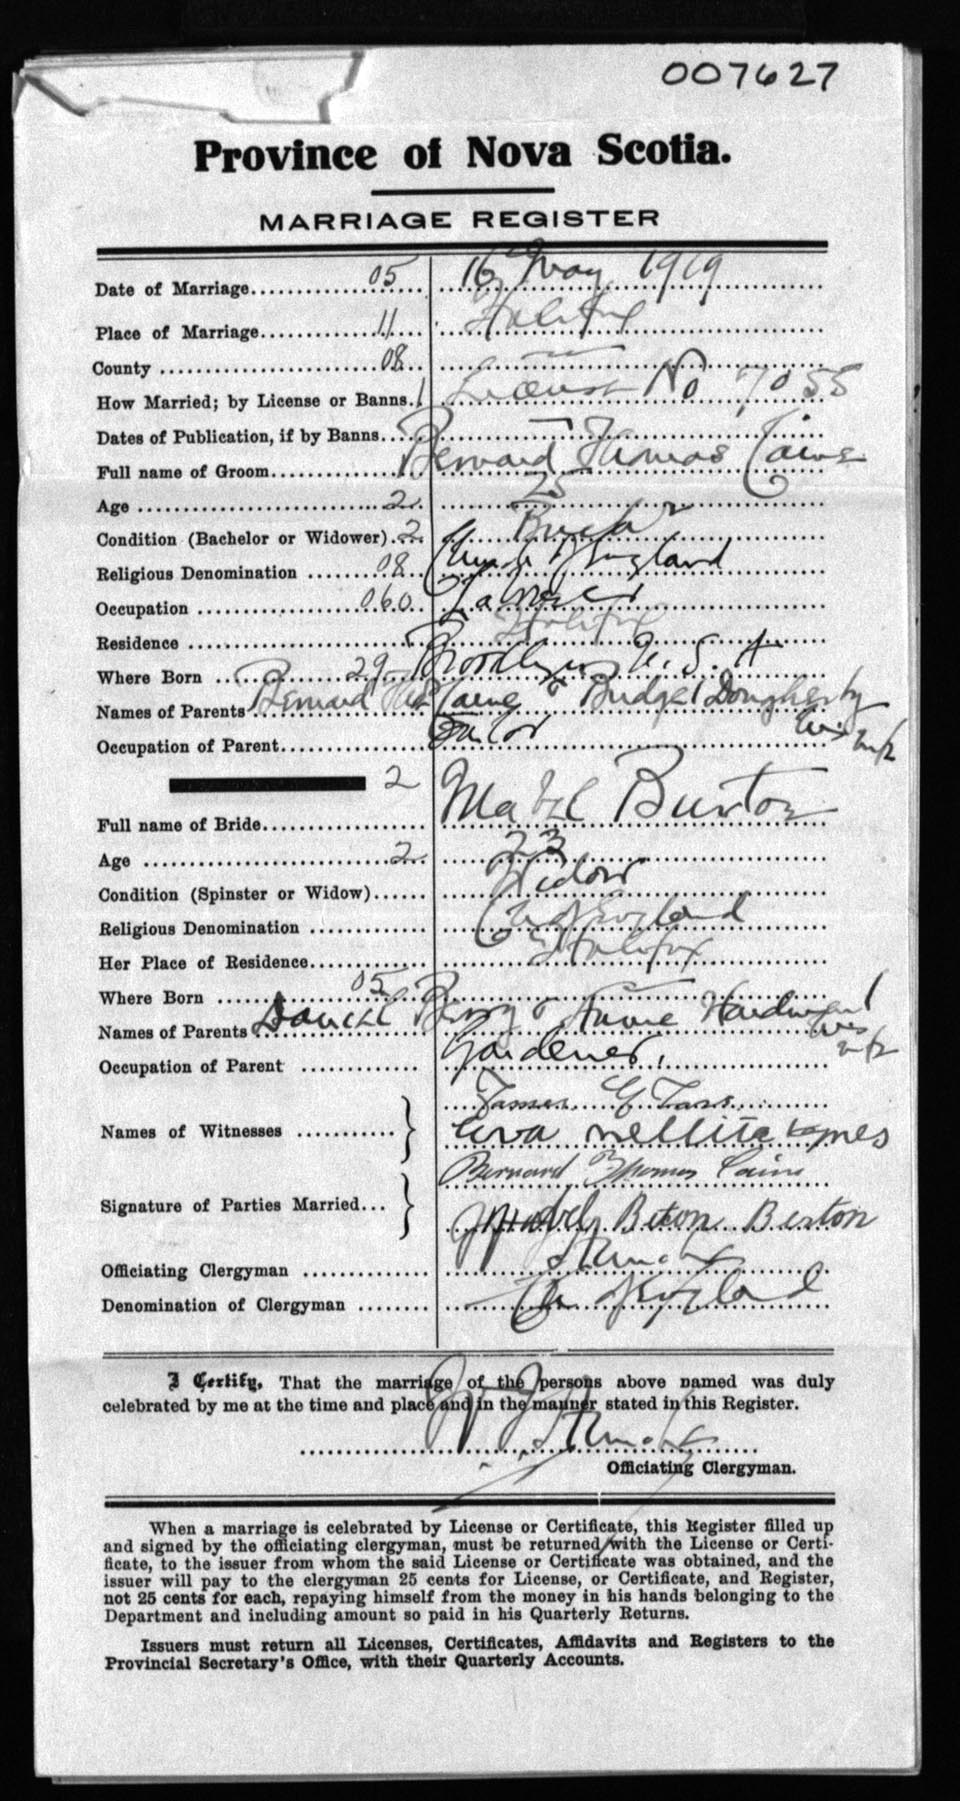 007627
Province of Nova Scotia.
MARRIAGE REGISTER
Date of Marriage 05 16 May 1919
Place of Marriage 11 Halifax
County 08
How Married; by License or Banns. 1 License No 7055
Dates of Publication, if by Banns
Full name of Groom Bernard Thomas Caine
Age 2 25
Condition (Bachelor or Widower) 2 Bach
Religious Denomination 08 Church of England
Occupation 060
Residence Halifax
Where Born 29 Brooklyn U.S.A
Names of Parents Bernard Caine & Bridget Dougherty
Occupation of Parent Tailor
2
Full name of Bride Mabel Burton
Age 2 23
Condition (Spinster or Widow) Widow
Religious Denomination Ch of England
Her Place of Residence Halifax
Where Born 05
Names of Parents Daniel & Annie
Occupation of Parent Gardener.
Names of Witnesses James E
Signature of Parties Married... Bernard Thomas Caine
Beton Berton
Officiating Clergyman
Denomination of Clergyman Ch of England
I Certify, That the marriage of the persons above named was duly
celebrated by me at the time and place and in the manner stated in this Register.
Officiating Clergyman.
When a marriage is celebrated by License or Certificate, this Register filled up
and signed by the officiating clergyman, must be returned with the License or Certi-
ficate, to the issuer from whom the said License or Certificate was obtained, and the
issuer will pay to the clergyman 25 cents for License, or Certificate, and Register,
not 25 cents for each, repaying himself from the money in his hands belonging to the
Department and including amount so paid in his Quarterly Returns.
Issuers must return all Licenses, Certificates, Affidavits and Registers to the
Provincial Secretary's Office, with their Quarterly Accounts.